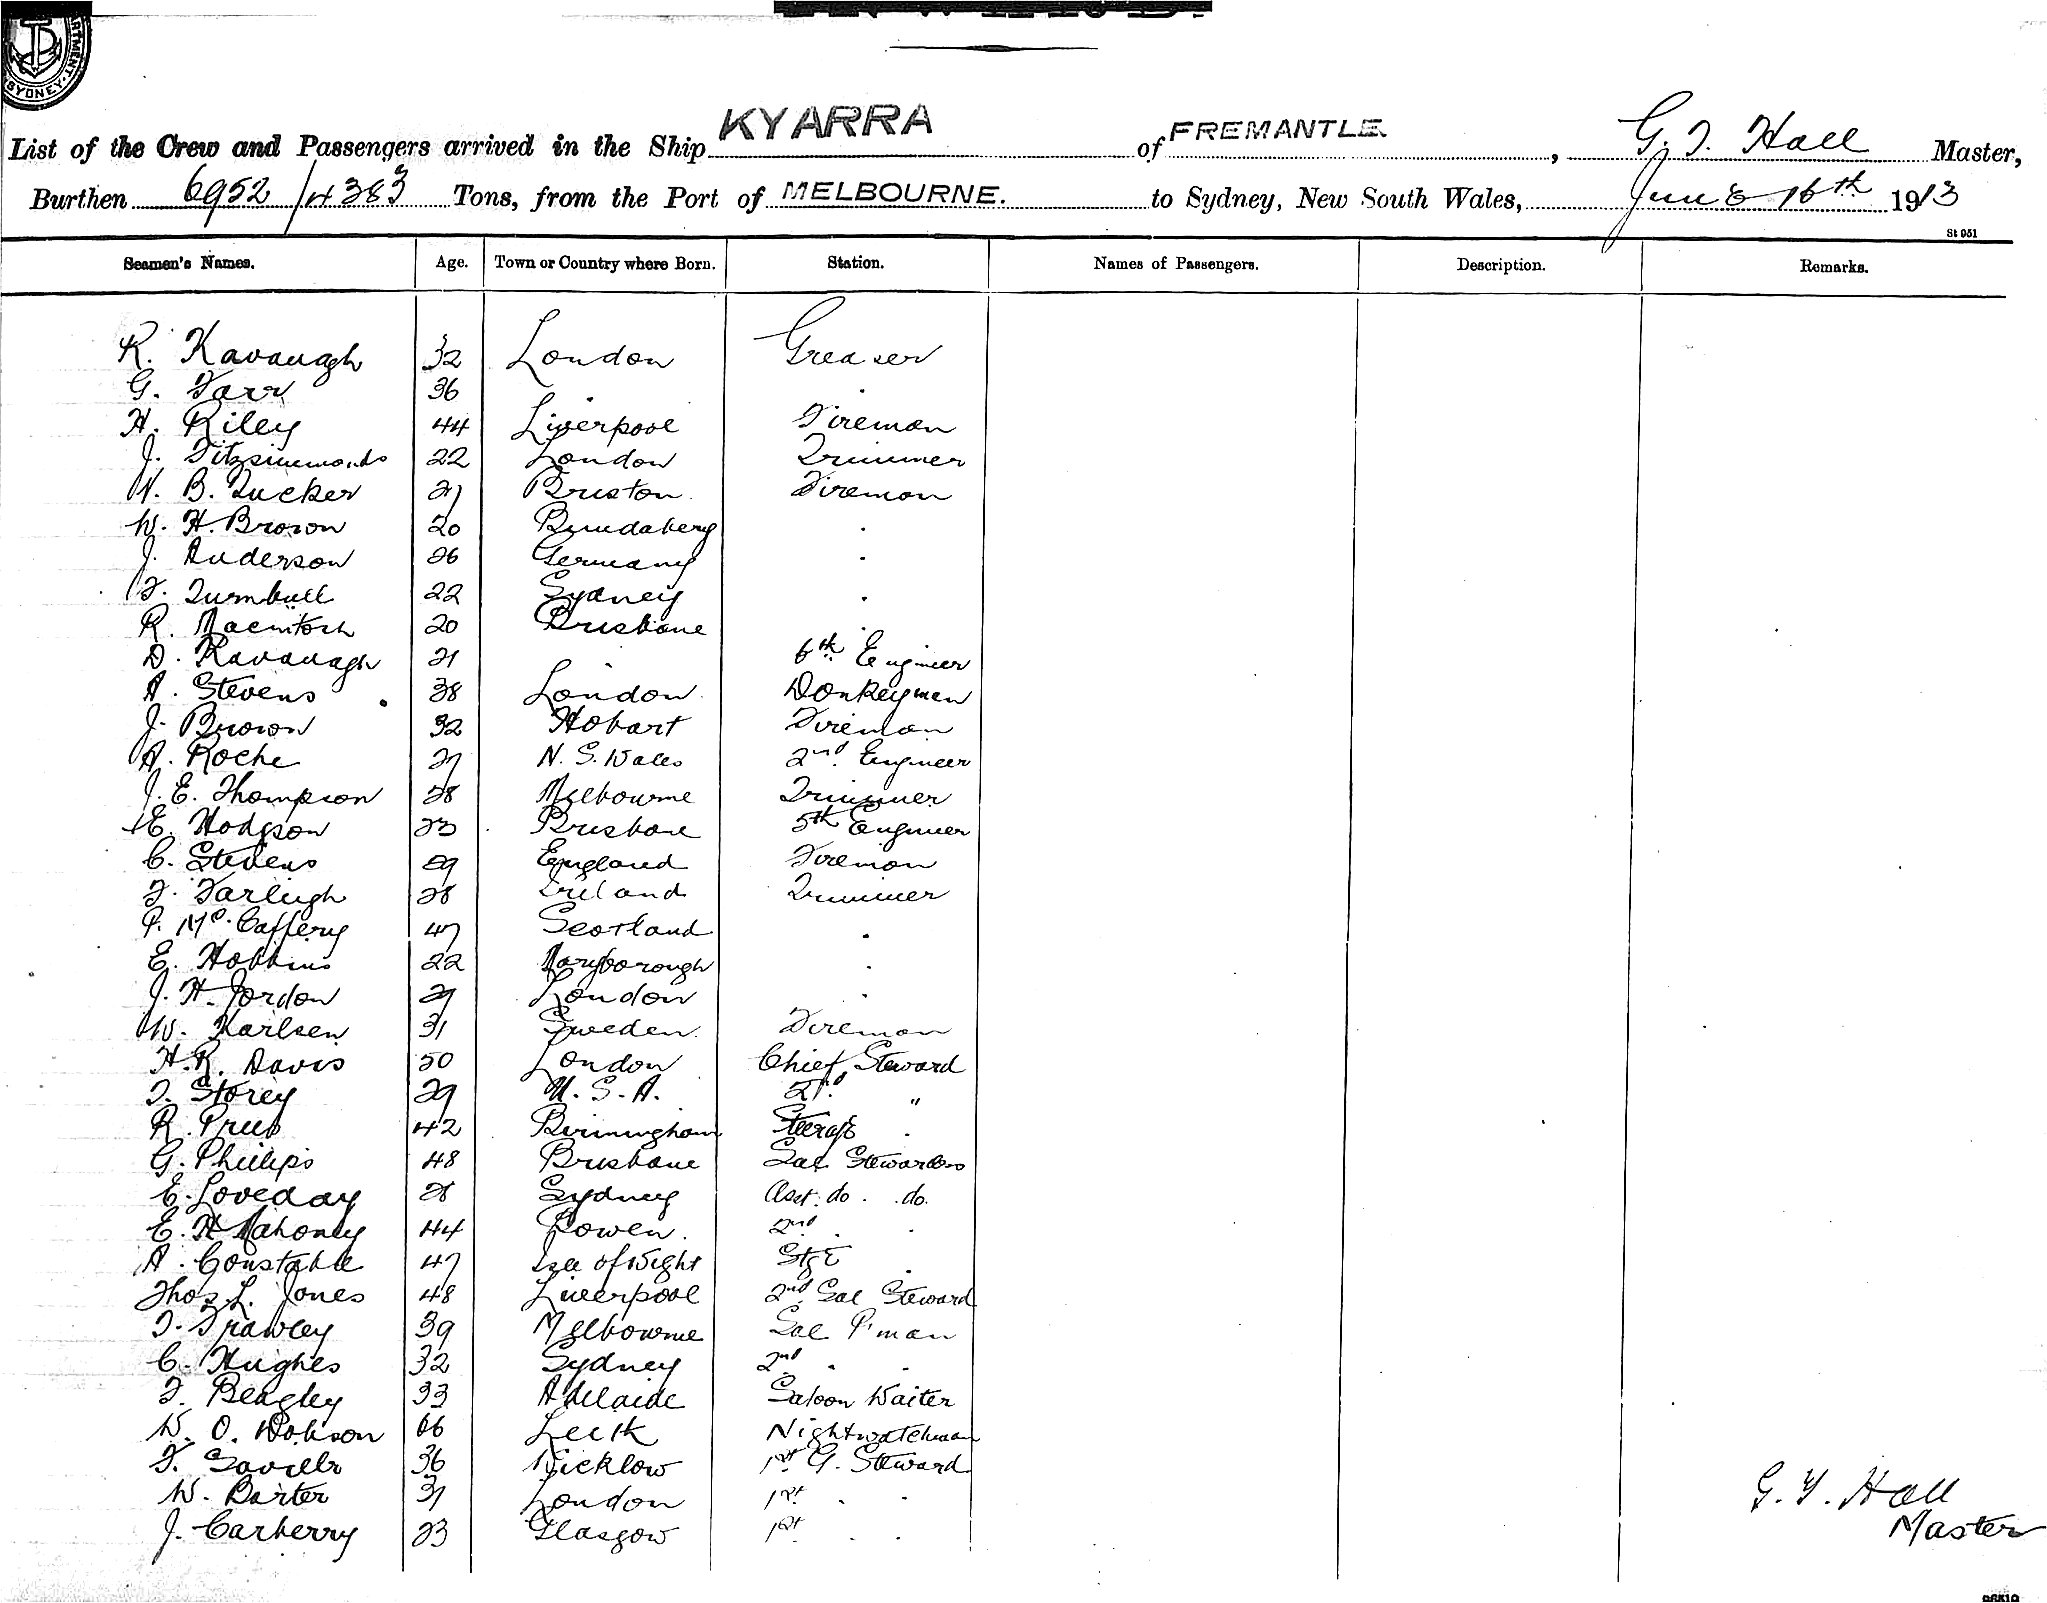 SYDNEY
List of the Crew and Passengers arrived in the Ship KYARRA of FREMANTLE. , G. T. Hall Master,
Burthen 6952/4383 Tons, from the Port of MELBOURNE. to Sydney, New South Wales, June 16th 1913
St 951
Seamen's Names. Age. Town or Country where Born. Station. Names of Passengers. Description. Remarks.
R. Kavanagh 32 London Greaser
G. Farr 36 . .
H. Riley 44 Liverpool Fireman
J. Fitzsimmonds 22 London Trimmer
W. B. Tucker 27 Fireman
W. H. Brown 20 Bundaberg .
J. Anderson 26 Germany .
F. Turnbull 22 Sydney .
R. Macintosh 20 Brisbane .
D. Kavanagh 21 . 6th Engineer
A. Stevens 38 London Donkeyman
J. Brown 32 Hobart Fireman
A. Roche 27 N. S. Wales 2nd Engineer
J. E. Thompson 28 Melbourne Trimmer
E. Hodgson 23 Brisbane 5th Engineer
C. Stevens 29 England Fireman
F. Farleigh 28 Ireland Trimmer
P. McCaffery 47 Scotland .
E. Hobbins 22 Maryborough .
J. H. Jordon 29 London .
W. Karlsen 31 Sweden Fireman
H. R. Davis 50 London Chief Steward
T. Storey 29 U. S. A. 2nd "
R. 42 Birmingham .
G. Phillips 48 Brisbane Sal Stewardess
E. Loveday 28 Sydney Asst. do. do.
E. H Mahoney 44 Bowen. 2nd . .
A. Constable 47 Isle of Wight Stge .
Thos L. Jones 48 Liverpool 2nd Sal Steward
T. Frawley 39 Melbourne Sal P'man
C. Hughes 32 Sydney 2nd . .
F. Beagley 33 Adelaide Saloon Waiter
W. O. Dobson 66 Leek Nightwatchman
F. 36 Wicklow 1st G. Steward
W. Barter 31 London 1st . .
J. Carberry 23 Glasgow 1st . .
G. T. Hall
Master